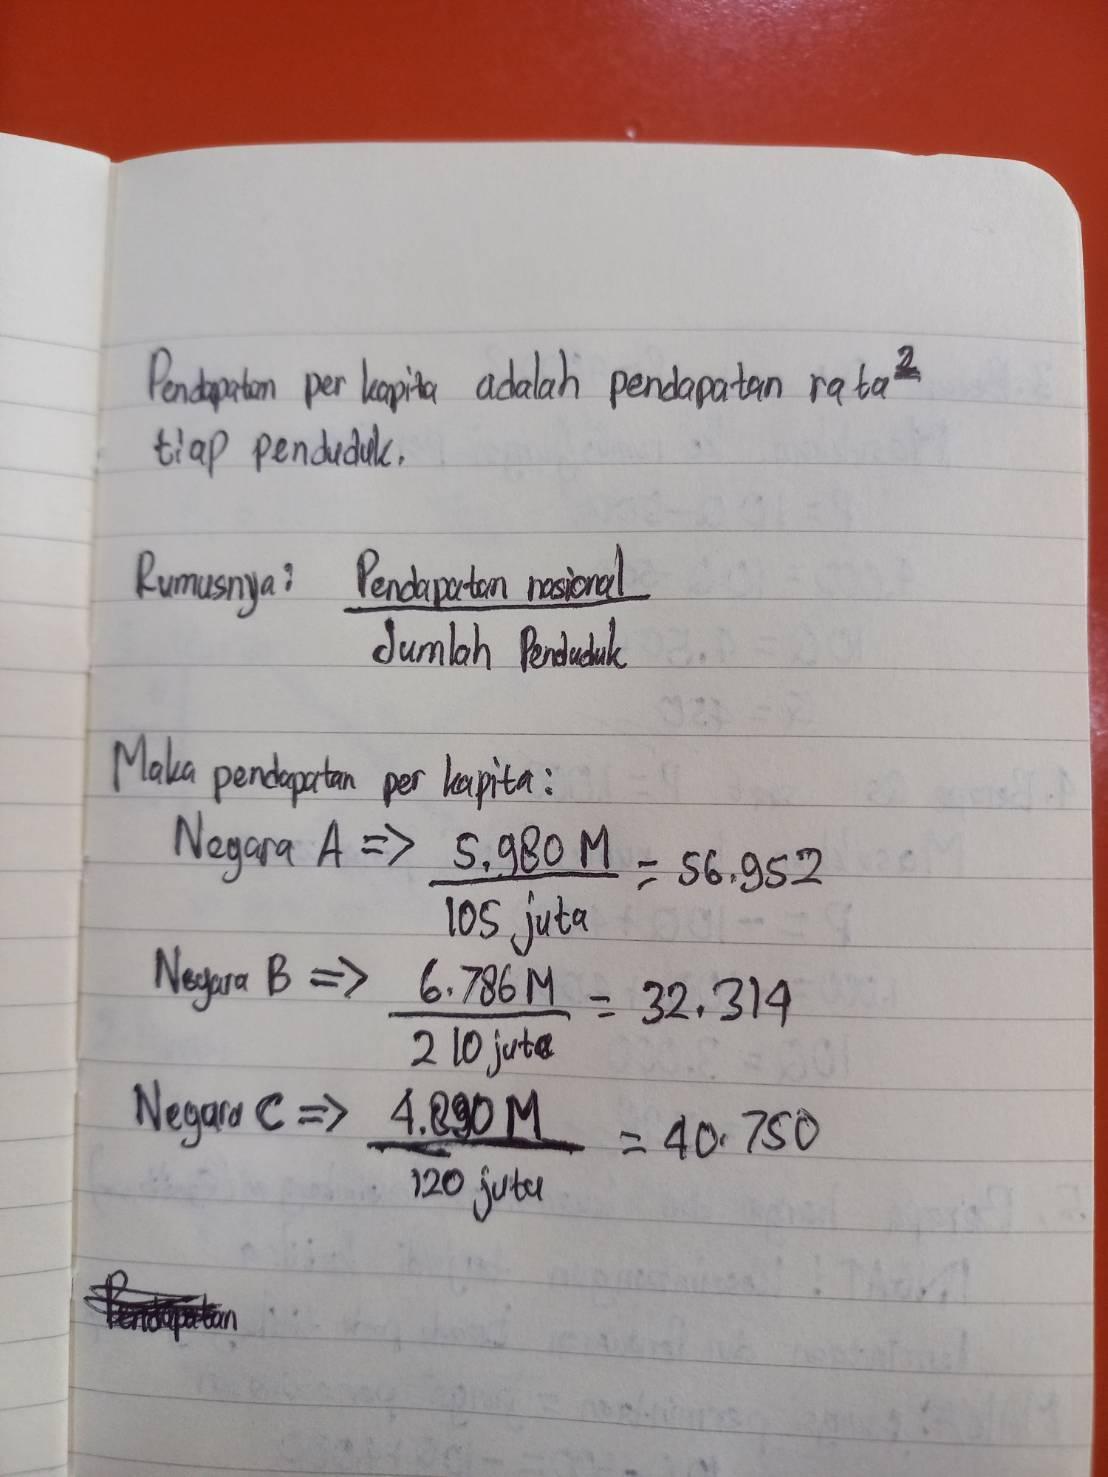 Pendapatan per kapita adalah pendapatan rata²
tiap penduduk.
Rumusnya: Pendapatan nasional
Jumlah Penduduk
Maka pendapatan per kapita:
Negara A => 5.980 M = 56.952
105 juta
Negara B => 6.786 M = 32.314
210 juta
Negara C => 4.890 M = 40.750
120 juta
Pendapatan